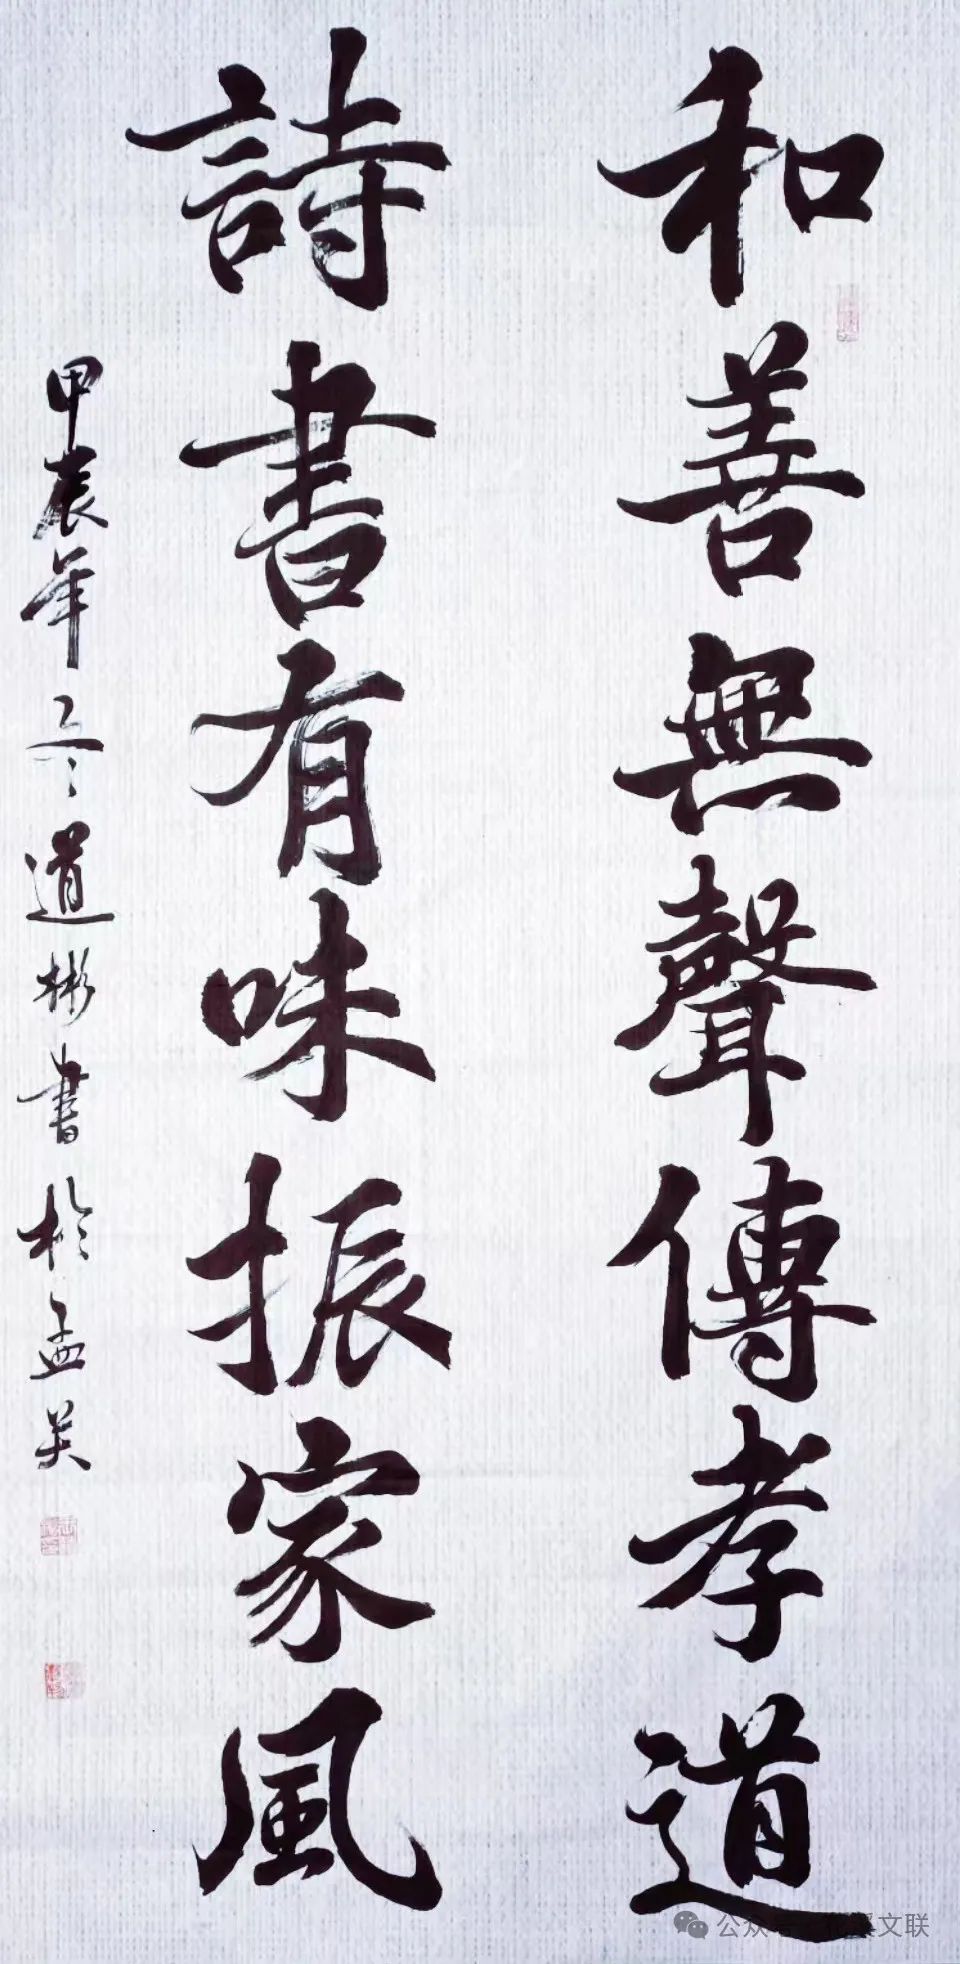 和善無聲傳孝道
詩書有味振家風
甲辰年冬道彬書於孟关
公众号 溪文联